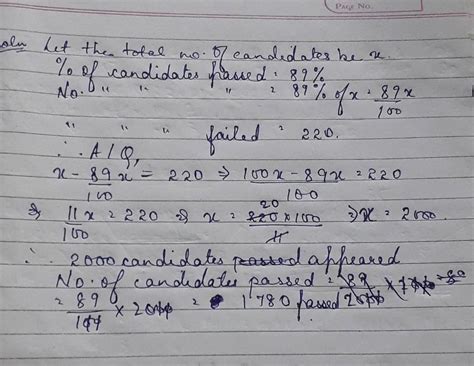 Page No.
Soln Let the total no. of candidates be x.
% of candidates passed = 89%
No. " " " = 89% of x = 89x/100
" " " failed = 220.
∴ A/Q,
x - 89x/100 = 220 ⇒ 100x - 89x/100 = 220
⇒ 11x/100 = 220 ⇒ x = 220 × 100/11 ⇒ x = 2000.
20
∴ 2000 candidates passed appeared
No. of candidates passed = 89
= 89/100 × 2000 = 1780 passed